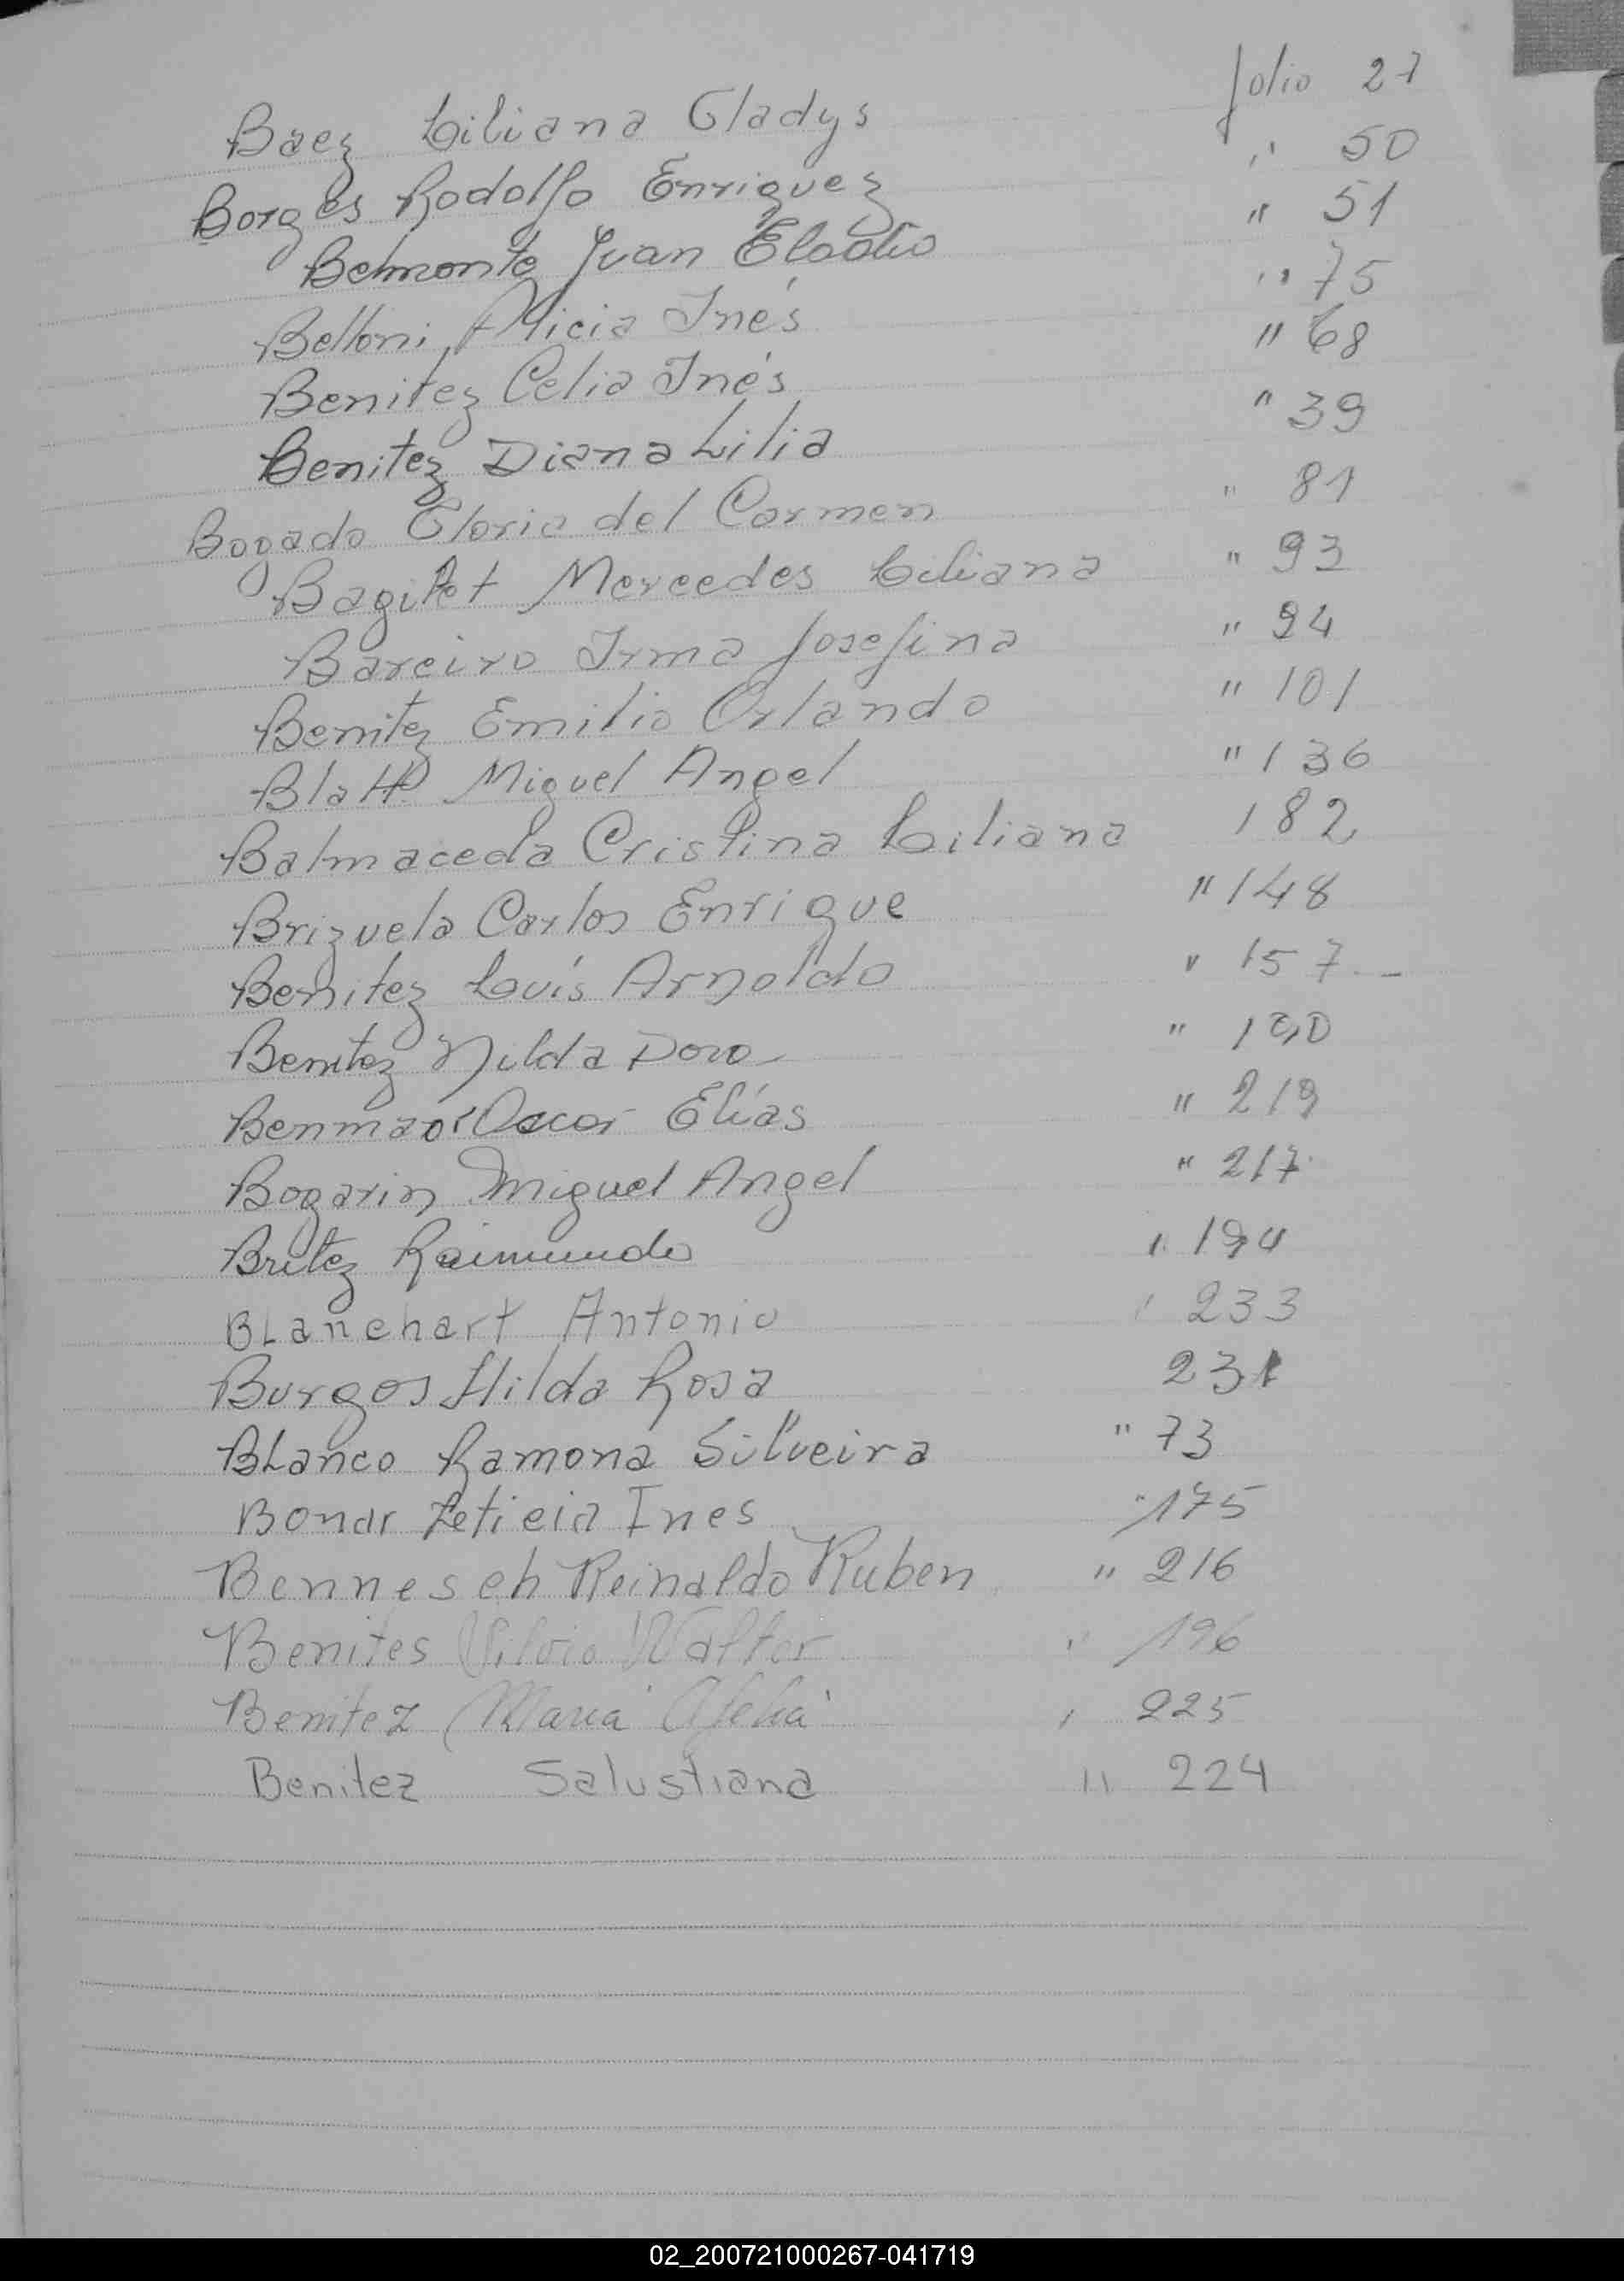 Baez Liliana Gladys folio 27
Borges Rodolfo Enriquez " 50
Belmonte Juan Eladio " 51
Belloni Alicia Inés " 75
Benitez Celia Inés " 68
Benitez Diana Lilia " 39
Bogado Gloria del Carmen " 81
Bagilet Mercedes Liliana " 93
Bareiro Irma Josefina " 94
Benitez Emilio Orlando " 101
Blatt Miguel Angel " 136
Balmaceda Cristina Liliana 182
Brizuela Carlos Enrique " 148
Benitez Luís Arnoldo " 157
Benitez Nilda Dora "
Benmaor Oscar Elías " 219
Bogarin Miguel Angel " 217
Britez Raimundo "
Blanchart Antonio " 233
Burgos Hilda Rosa 231
Blanco Ramona Silveira " 73
Bonar Leticia Ines " 175
Bennesch Reinaldo Ruben " 216
Benites Silvio Walter " 196
Benitez Maria Ofelia " 225
Benitez Salustiana " 224
02_200721000267-041719